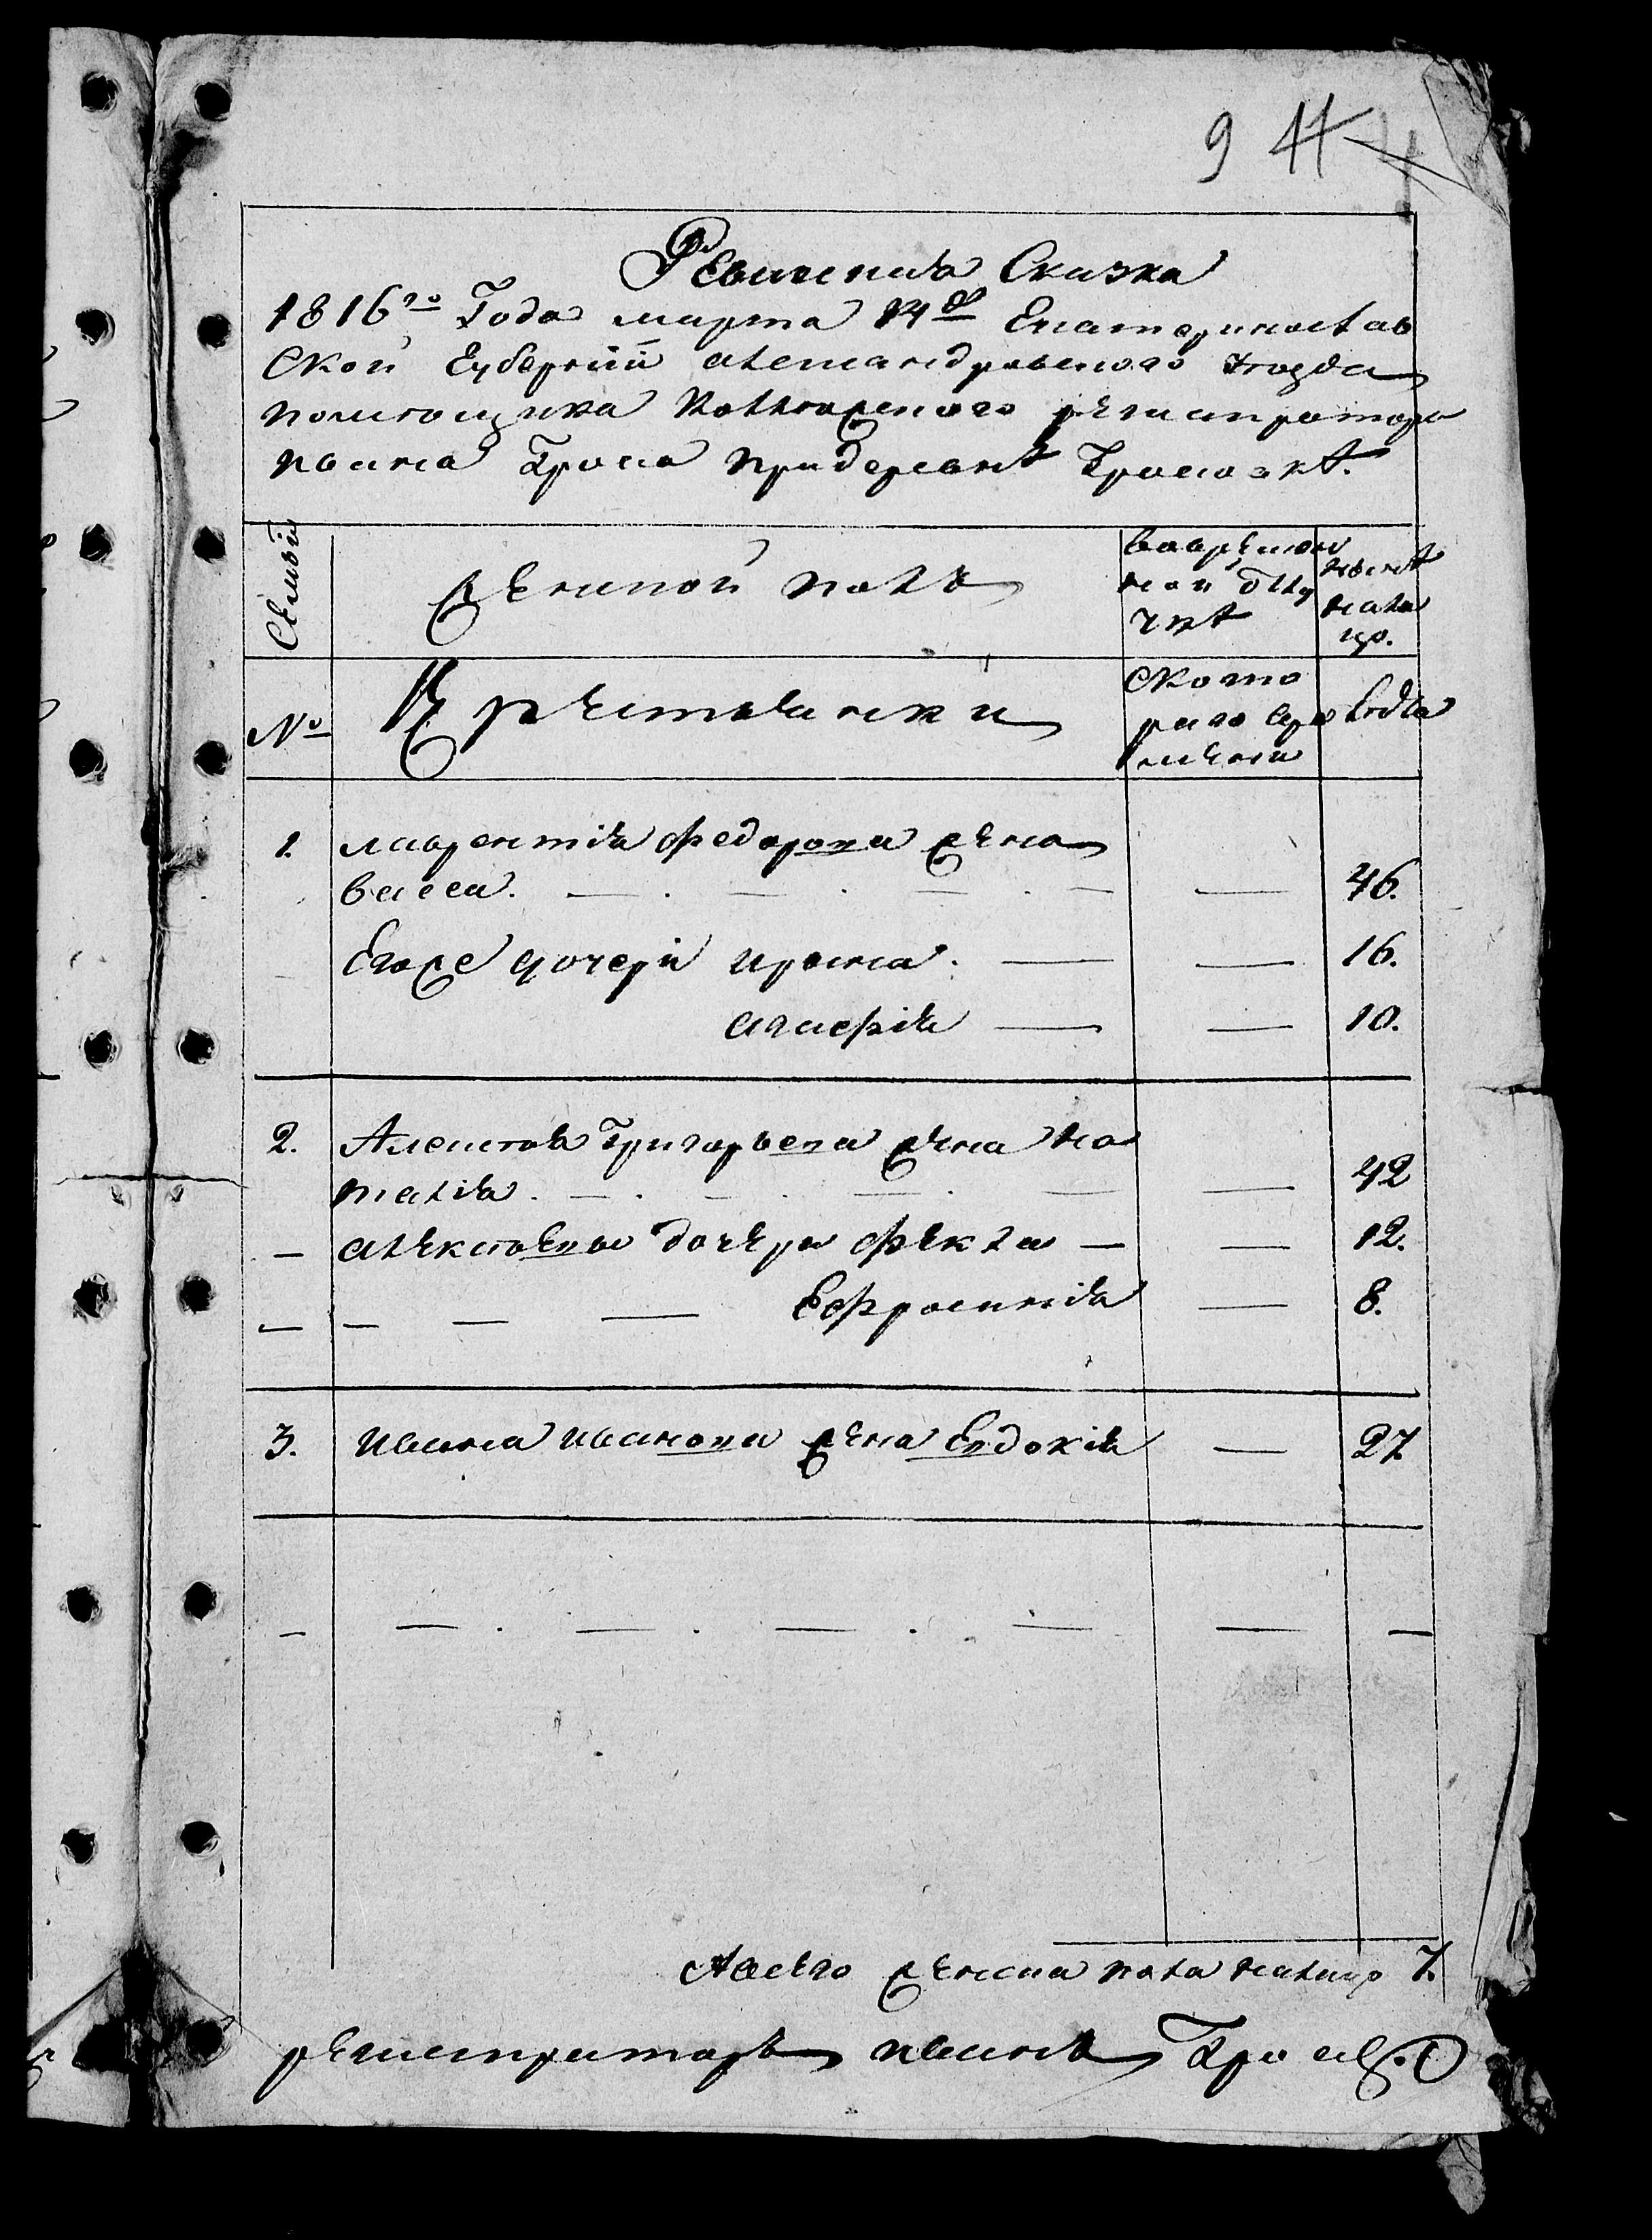 9 11
Ревизская Сказка
1816го Года марта 14 д Екатеринослав
Ской Губернии Александровского уезда
помещика Коллежского регистратора
ивана Гроса придеревне Гросовке.
Семьи
женской полъ
вовремен
ной отлу
чке
Ныне
нали
цо.
№
Крестьянки
Ското
раго вре
мени
лета
1. лаврентия федорова жена
васса. — . — . — . — — 46.
Егоже дочери ирина. — — 16.
агафия — — 10.
2. Алексея Григорьева жена На
талия . — . — . — . — — 42
— алексеевы дочери фекла — — 12.
— — — — Ефросиния — 8.
3. ивана иванова жена Евдокия — 27.
— — . — . — . — — —
Авсего женска пола налицо 7.
регистраторъ иванъ Гросъ